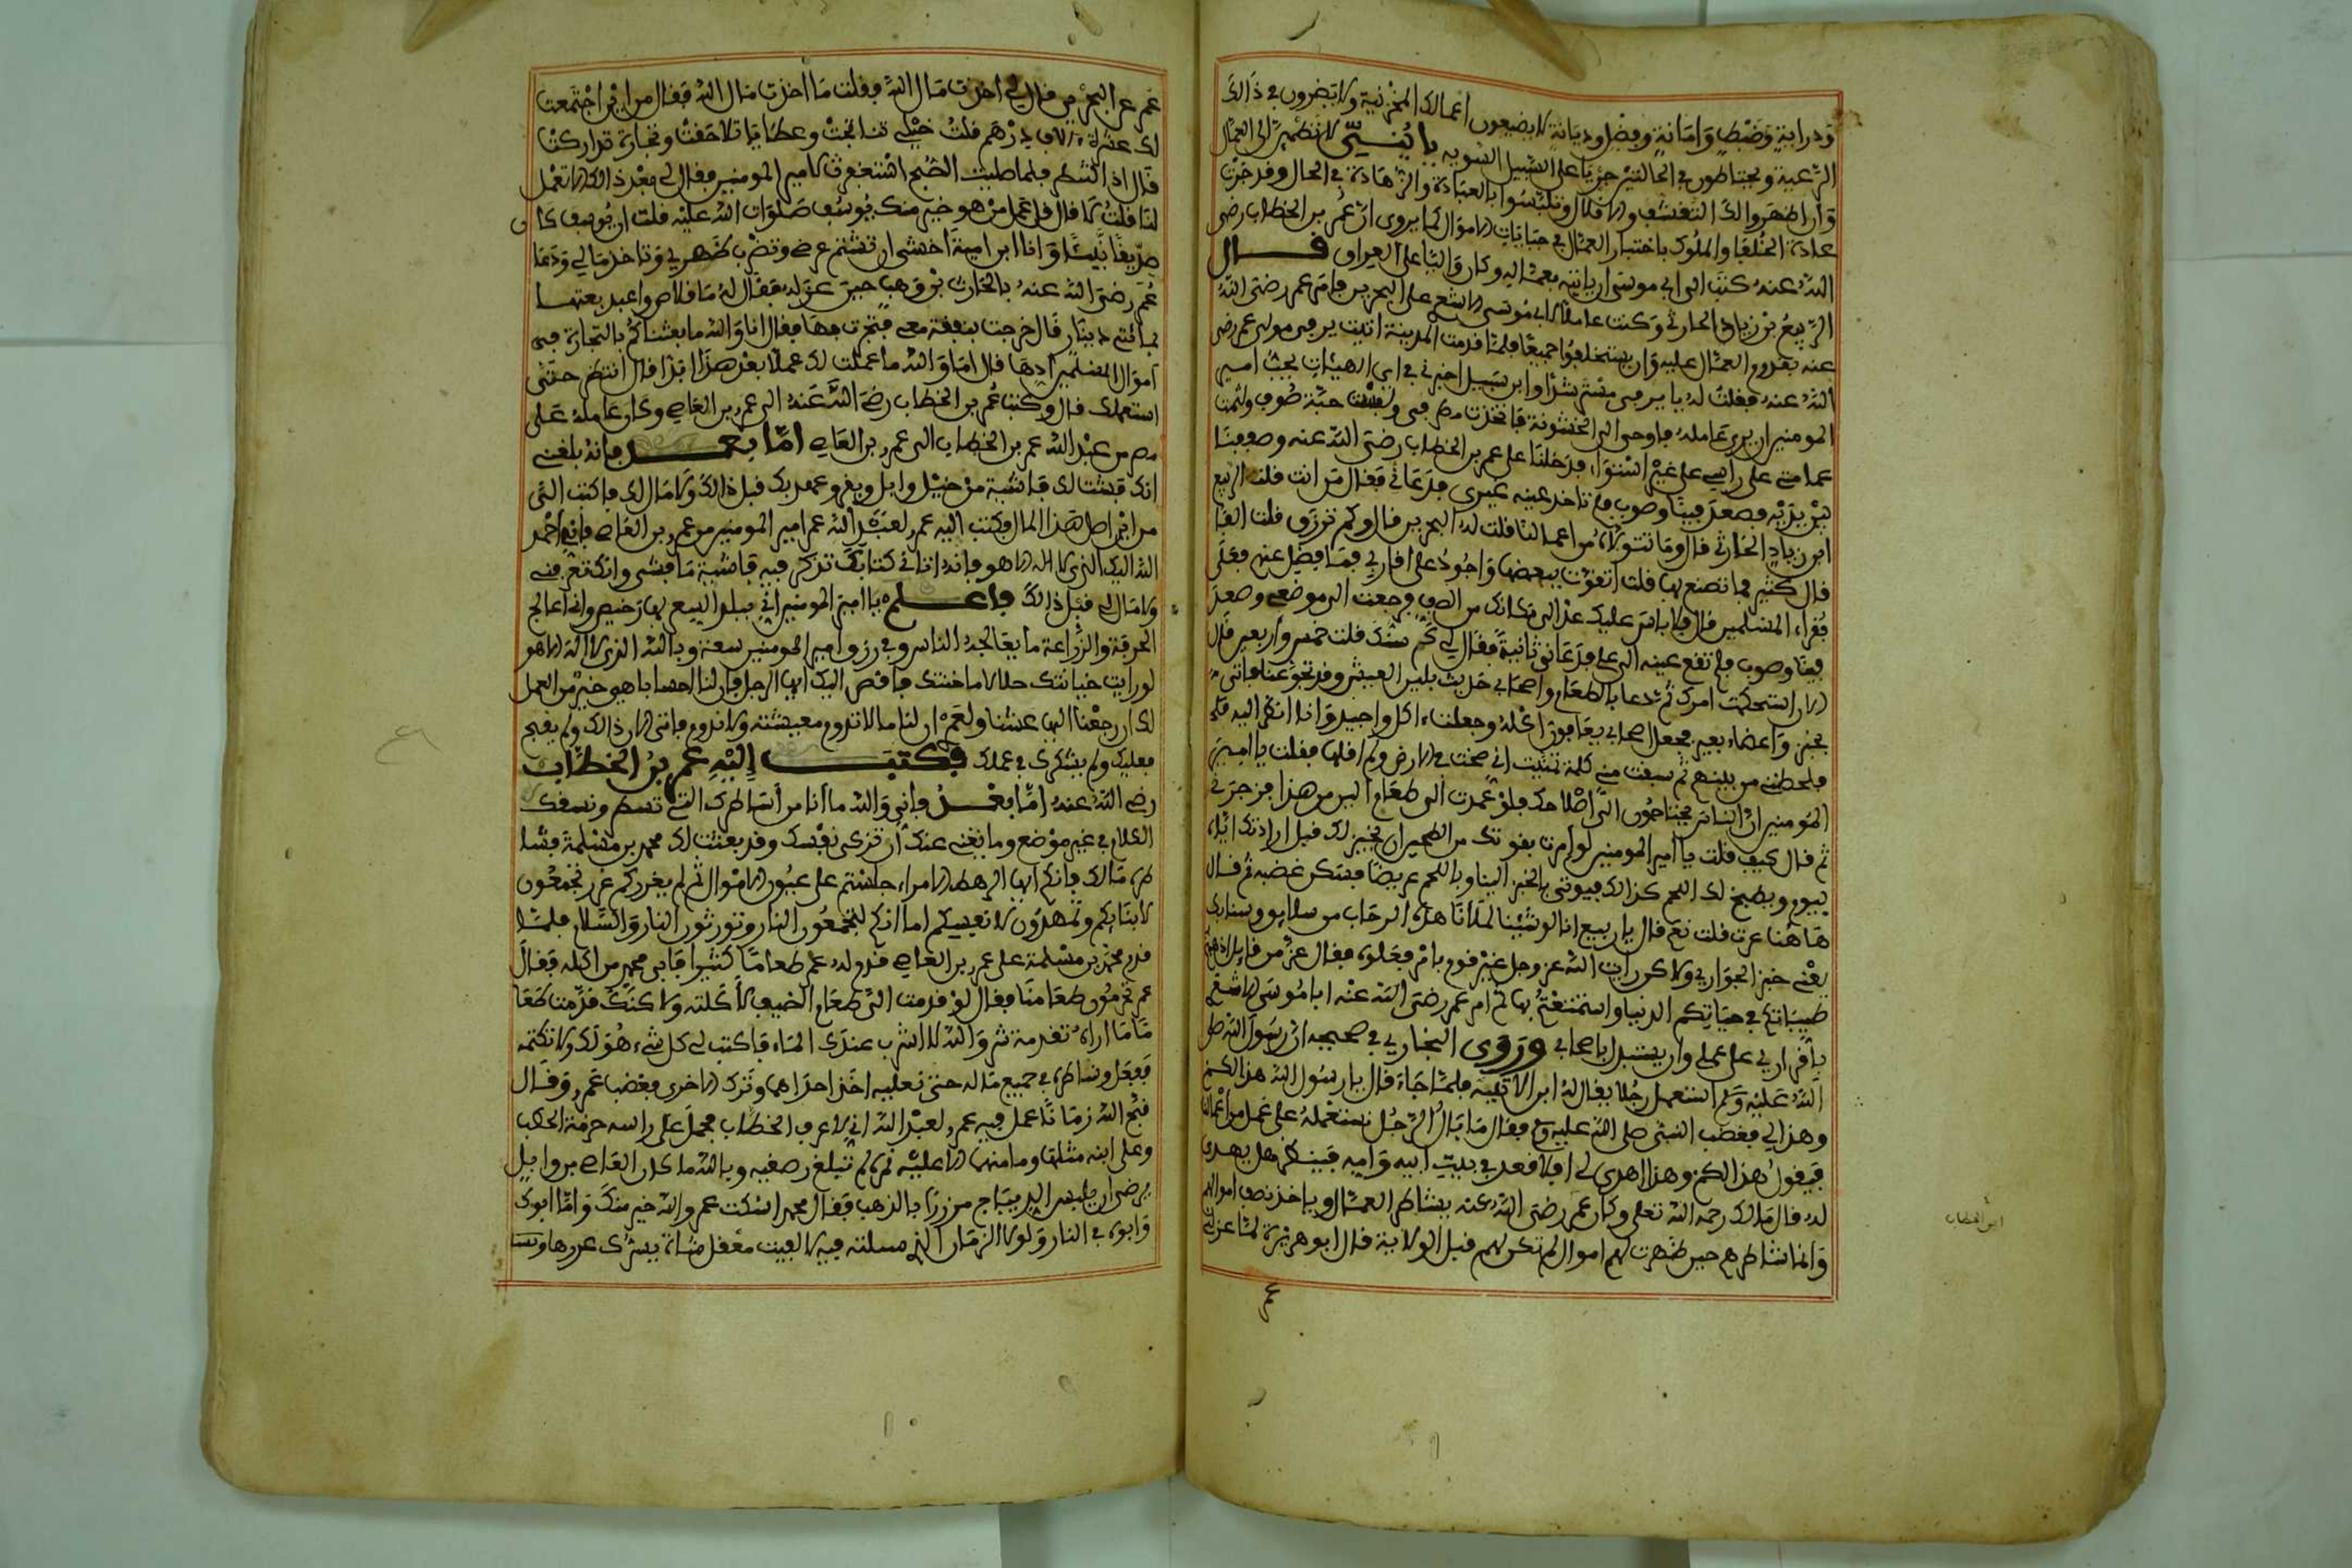 ودراية وضبط وامانة وفضل وديانة لا يضيعون اعمالك المخزنية ولا يضرون في ذالك
الرعية ويحتاطون في الحالتين جريا على السبيل السوية يا بني لا تطمئن الى العمال
وان اظهروا لك التقشف والاقلال وتلبسوا بالعبادة والزهادة في الحال وقد جرت
عادة الخلفا والملوك باختبار العمال في جبايات الاموال كما يروى ان عمر بن الخطاب رضي
الله عنه كتب الى ابي موسى ان ياتيه بعماله وكان واليا على العراق قال
الربيع بن زياد الحارثي وكنت عاملا لابي موسى الاشعري على البحرين فامر عمر رضي الله
عنه بقدوم العمال عليه وان يستخلفوا جميعا فلما قدمت المدينة اتيت يرفى مولى عمر رضي
الله عنه فقلت له يا يرفى مسترشدا وابن سبيل اخبرني في اي الهيئات يحب امير
المومنين ان يرى عامله فاوحى الى الخشونة فاتخذت ولبست جبة صوف ولثمت
عمامتي على راسي على غير استواء فدخلنا على عمر بن الخطاب رضي الله عنه وصففنا
بين يديه فصعد فينا وصوب فلم تاخذ عينه غيري فدعاني فقال من انت قلت الربيع
ابن زياد الحارثي قال وما تتولاه من اعمالنا قلت له البحرين قال وكم ترزق قلت الفا
قال كثير فما تصنع بها قلت اتقوت ببعضها واجود على اقاربي فما فضل عنهم فعلى
فقراء المسلمين قال فلا باس عليك عد الى مكانك من الصف فرجعت الى موضعي وصعد
فينا وصوب فلم تقع عينه الى علي فدعاني ثانية فقال لي كم سنك قلت خمس واربعين قال
الان استحكمت امرك ثم دعا بالطعام واصحابي حديث بلين العيش وقد تجوعنا فاتي
بخبز واعضاء بعير فجعل اصحابي يعافون اكله وجعلت ءاكل واجيد وانا انظر اليه فلم
فلحظني من بينهم ثم سبقت مني كلمة تمنيت اني صخت في الارض ولم اقلها فقلت يا امير
المومنين ان الناس محتاجون الى اصلاحك فلو عمدت الى طعام الين من هذا فزجرني
ثم قال كيف قلت يا امير المومنين لو امرت بقوتك من الطحين ان يخبز لك قبل ارادتك اياه
بيوم ويطبخ لك اللحم كذالك فيوتى بالخبز لينا وباللحم غريضا فسكن غضبه ثم قال
هاهنا غرت قلت نعم قال يا ربيع انا لو شئنا لملانا هذه الرحاب من سلايق وسبايك
يعني خبز الحوارى ولاكن رايت الله عز وجل عير قوما بامر فعلوه فقال عز من قايل اذهبتم
طيباتكم في حياتكم الدنيا واستمتعتم بها ثم امر عمر رضي الله عنه ابا موسى الاشعري
باقراري على عملي وان يستبدل اصحابي وروى البخاري في صحيحه ان رسول الله صلى
الله عليه وسلم استعمل رجلا يقال له ابن الاتبية فلما جاء قال يا رسول الله هذا لكم
وهذا لي فغضب النبي صلى الله عليه وسلم فقال ما بال الرجل نستعمله على عمل من اعمالنا
فيقول هذا لكم وهذا اهدي لي افلا قعد في بيت ابيه وامه فينظر هل يهدى
له قال مالك رحمه الله تعلى وكان عمر رضي الله عنه يشاطر العمال وياخذ نصف اموالهم
وانما شاطرهم حين ظهرت لهم اموال لم تكن لهم قبل الولاية قال ابو هريرة لما عزلني
عمر
ابن الخطاب
عمر عن البحرين قال لي اخذت مال الله فقلت ما اخذت مال الله فقال من اين اجتمعت
لك عشرة ءالاف درهم قلت خيلي تناتجت وعطايا تلاحقت وتجارة تداركت
قال اذ الشطر فلما صليت الصبح استغفرت لامير المومنين فقال لي بعد ذالك الا تعمل
لنا قلت لا قال قد عمل من هو خير منك يوسف صلوات الله عليه قلت ان يوسف كان
صديقا نبيئا وانا ابن امية اخشى ان تشتم عرضي وتضرب ظهري وتاخذ مالي ودعا
عمر رضي الله عنه بالحارث بن وهب حين عزله فقال له ما قلاص واعبد بعتها
بمائتي دينار قال خرجت بنفقة معي فتجرت فيها فقال انا والله ما بعثناكم بالتجارة في
اموال المسلمين ادها قال اما والله ما عملت لك عملا بعد هذا ابدا قال انتظر حتى
استعملك قال وكتب عمر بن الخطاب رضي الله عنه الى عمرو بن العاصي وكان عامله على
مصر من عبد الله عمر بن الخطاب الى عمرو بن العاصي اما بعد فانه بلغني
انك فشت لك فاشية من خيل وابل وبقر وعهدي بك قبل ذالك ولا مال لك فاكتب الي
من اين اصل هذا المال فكتب اليه عمرو لعبد الله عمر امير المومنين من عمرو بن العاصي فاني احمد
الله اليك الذي لا اله الا هو فانه اتاني كتابك تذكر فيه فاشية ما فشى وانك تعرفني
ولا مال لي قبل ذالك فاعلم يا امير المومنين اني ببلد البيع بها رخيص واني اعالج
الحرفة والزراعة ما يعالجه الناس وفي رزق امير المومنين سعة وبالله الذي لا اله الا هو
لو رايت خيانتك حلالا ما خنتك فاقصر اليك ايها الرجل فان لنا احسابا هو خير من العمل
لك ان رجعنا اليها عشنا ولعمري ان لنا مالا تدوم معيشته ولا تدوم فاتى كان ذالك ولم يفتح
فعليك ولم يشكرك في عملك فكتب اليه عمر بن الخطاب
رضي الله عنه اما بعد فاني والله ما انا من اساطيرك التي تسطر ونسفك
الكلام في غير موضع وما يغني عنك ان تزكي نفسك وقد بعثت لك محمد بن مسلمة فشا
طره مالك فانكم ايها الرهط الامراء جلستم على عيون الاموال ثم لم يعوزكم عذر تجمعون
لابنائكم وتمهدون لانفسكم اما انكم لتجمعون النار وتورثون النار والسلام فلما
قدم محمد بن مسلمة على عمرو بن العاصي قدم له عمرو طعاما كثيرا فابى محمد من اكله فقال
عمر تحرمون طعامنا فقال لو قدمت الي طعام الضيف لاكلته ولاكنك قدمت طعا
ما ما اراه تقدمة شر والله لا اشرب عندك الماء فاكتب لي كل شيء هو لك ولا تكتمه
ففعل وشاطره في جميع ماله حتى نعليه اخذ احداهما وترك الاخرى فغضب عمرو وقال
قبح الله زمانا عمل فيه عمرو لعبد الله اني لاعرف الخطاب يحمل على راسه حزمة الحطب
وعلى ابنه مثلها وما منهما الا عليه نمرة لم تبلغ رصغيه وبالله ما كان العاصي بن وايل
يرضى ان يلبس الديباج من زرا بالذهب فقال محمد اسكت عمر والله خير منك واما ابوك
وابوه في النار ولولا الزمان الذي مسلته فيه لالفيت معقل شاة يسرك غزرها ويسـ